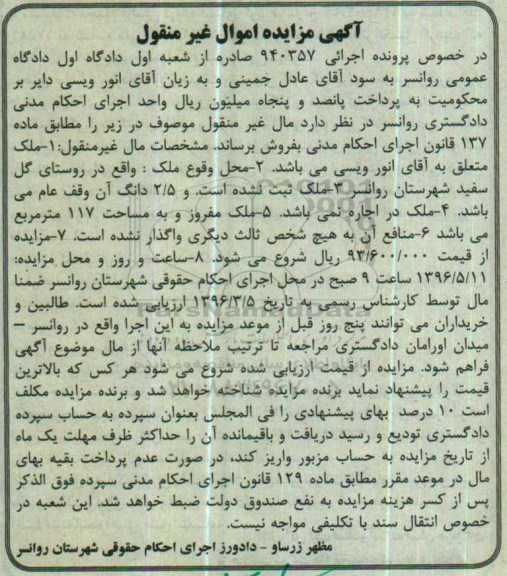 آگهی مزایده اموال غیر منقول
در خصوص پرونده اجرائی ۹۴۰۳۵۷ صادره از شعبه اول دادگاه اول دادگاه
عمومی روانسر به سود آقای عادل جمینی و به زیان آقای انور ویسی دایر بر
محکومیت به پرداخت پانصد و پنجاه میلیون ریال واحد اجرای احکام مدنی
دادگستری روانسر در نظر دارد مال غیر منقول موصوف در زیر را مطابق ماده
۱۳۷ قانون اجرای احکام مدنی بفروش برساند. مشخصات مال غیرمنقول:۱-ملک
متعلق به آقای انور ویسی می باشد. ۲-محل وقوع ملک : واقع در روستای گل
سفید شهرستان روانسر ۳-ملک ثبت نشده است. و ۲/۵ دانگ آن وقف عام می
باشد. ۴-ملک در اجاره نمی باشد. ۵-ملک مفروز و به مساحت ۱۱۷ مترمربع
می باشد ۶-منافع آن به هیچ شخص ثالث دیگری واگذار نشده است. ۷-مزایده
از قیمت ۹۳/۶۰۰/۰۰۰ ریال شروع می شود. ۸-ساعت و روز و محل مزایده:
۱۳۹۶/۵/۱۱ ساعت ۹ صبح در محل اجرای احکام حقوقی شهرستان روانسر ضمنا
مال توسط کارشناس رسمی به تاریخ ۱۳۹۶/۳/۵ ارزیابی شده است. طالبین و
خریداران می توانند پنج روز قبل از موعد مزایده به این اجرا واقع در روانسر –
میدان اورامان دادگستری مراجعه تا ترتیب ملاحظه آنها از مال موضوع آگهی
فراهم شود. مزایده از قیمت ارزیابی شده شروع می شود هر کس که بالاترین
قیمت را پیشنهاد نماید برنده مزایده شناخته خواهد شد و برنده مزایده مکلف
است ۱۰ درصد بهای پیشنهادی را فی المجلس بعنوان سپرده به حساب سپرده
دادگستری تودیع و رسید دریافت و باقیمانده آن را حداکثر ظرف مهلت یک ماه
از تاریخ مزایده به حساب مزبور واریز کند، در صورت عدم پرداخت بقیه بهای
مال در موعد مقرر مطابق ماده ۱۲۹ قانون اجرای احکام مدنی سپرده فوق الذکر
پس از کسر هزینه مزایده به نفع صندوق دولت ضبط خواهد شد. این شعبه در
خصوص انتقال سند با تکلیفی مواجه نیست.
مظهر زرساو - دادورز اجرای احکام حقوقی شهرستان روانسر
ParsNamadData